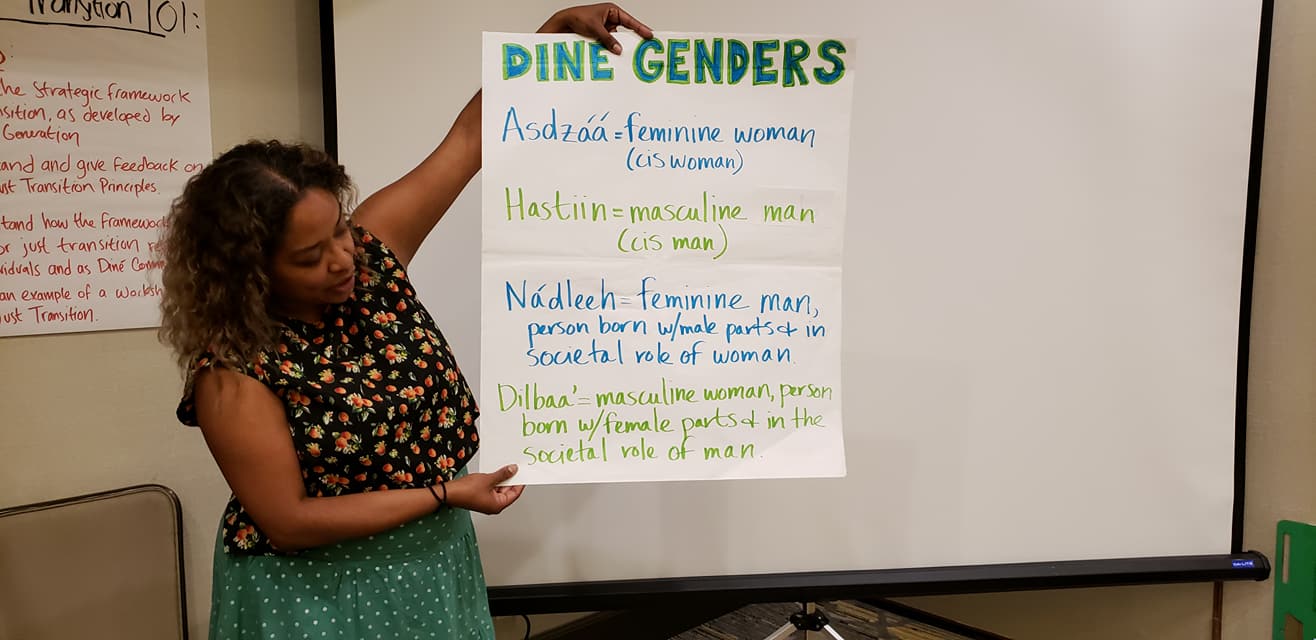 Transition 101:
the Strategic framework
as developed by
Generation
and give feedback on
Transition Principles.
how the framework
just transition
and as Diné
an example of a
Just Transition.
DINÉ GENDERS
Asdzáá = feminine woman
(cis woman)
Hastiin = masculine man
(cis man)
Nádleeh = feminine man,
person born w/male parts & in
societal role of woman.
Dilbaa' = masculine woman, person
born w/female parts & in the
societal role of man.
DA-LITE